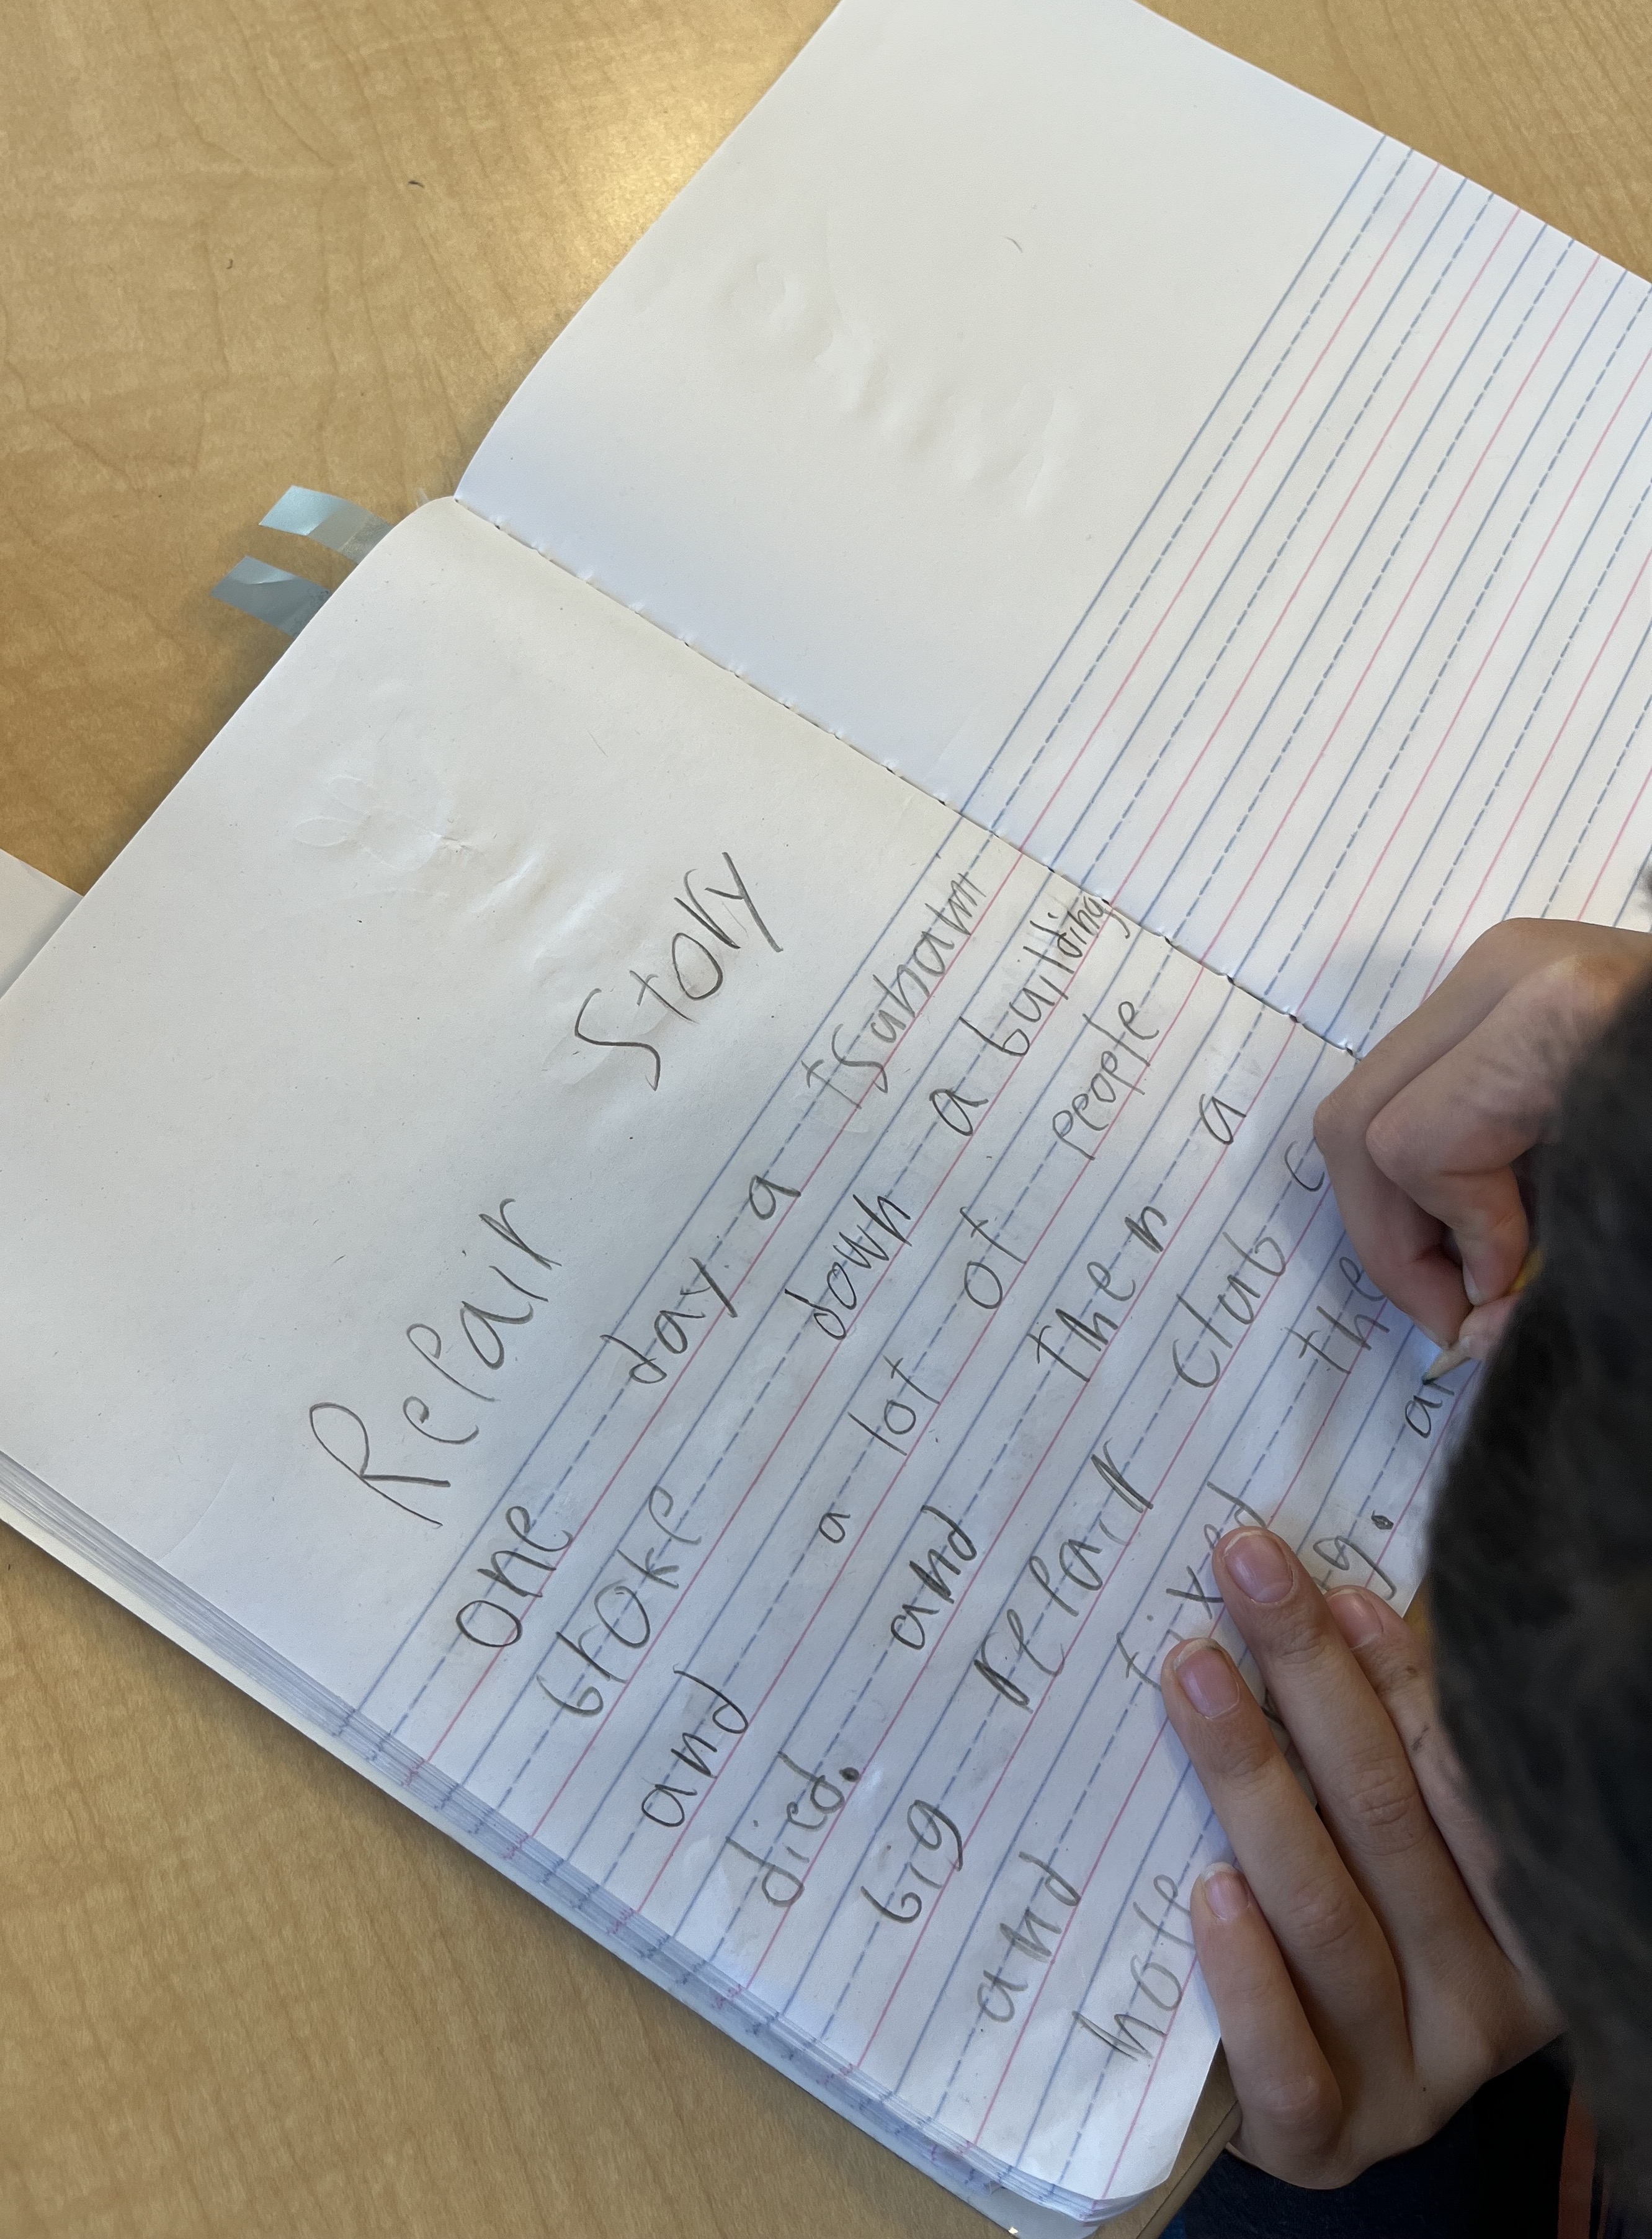 Repair Story
one day a Tsunami
broke down a building
and a lot of people
died. and then a
big repair club c
and fixed the
hole
g. an